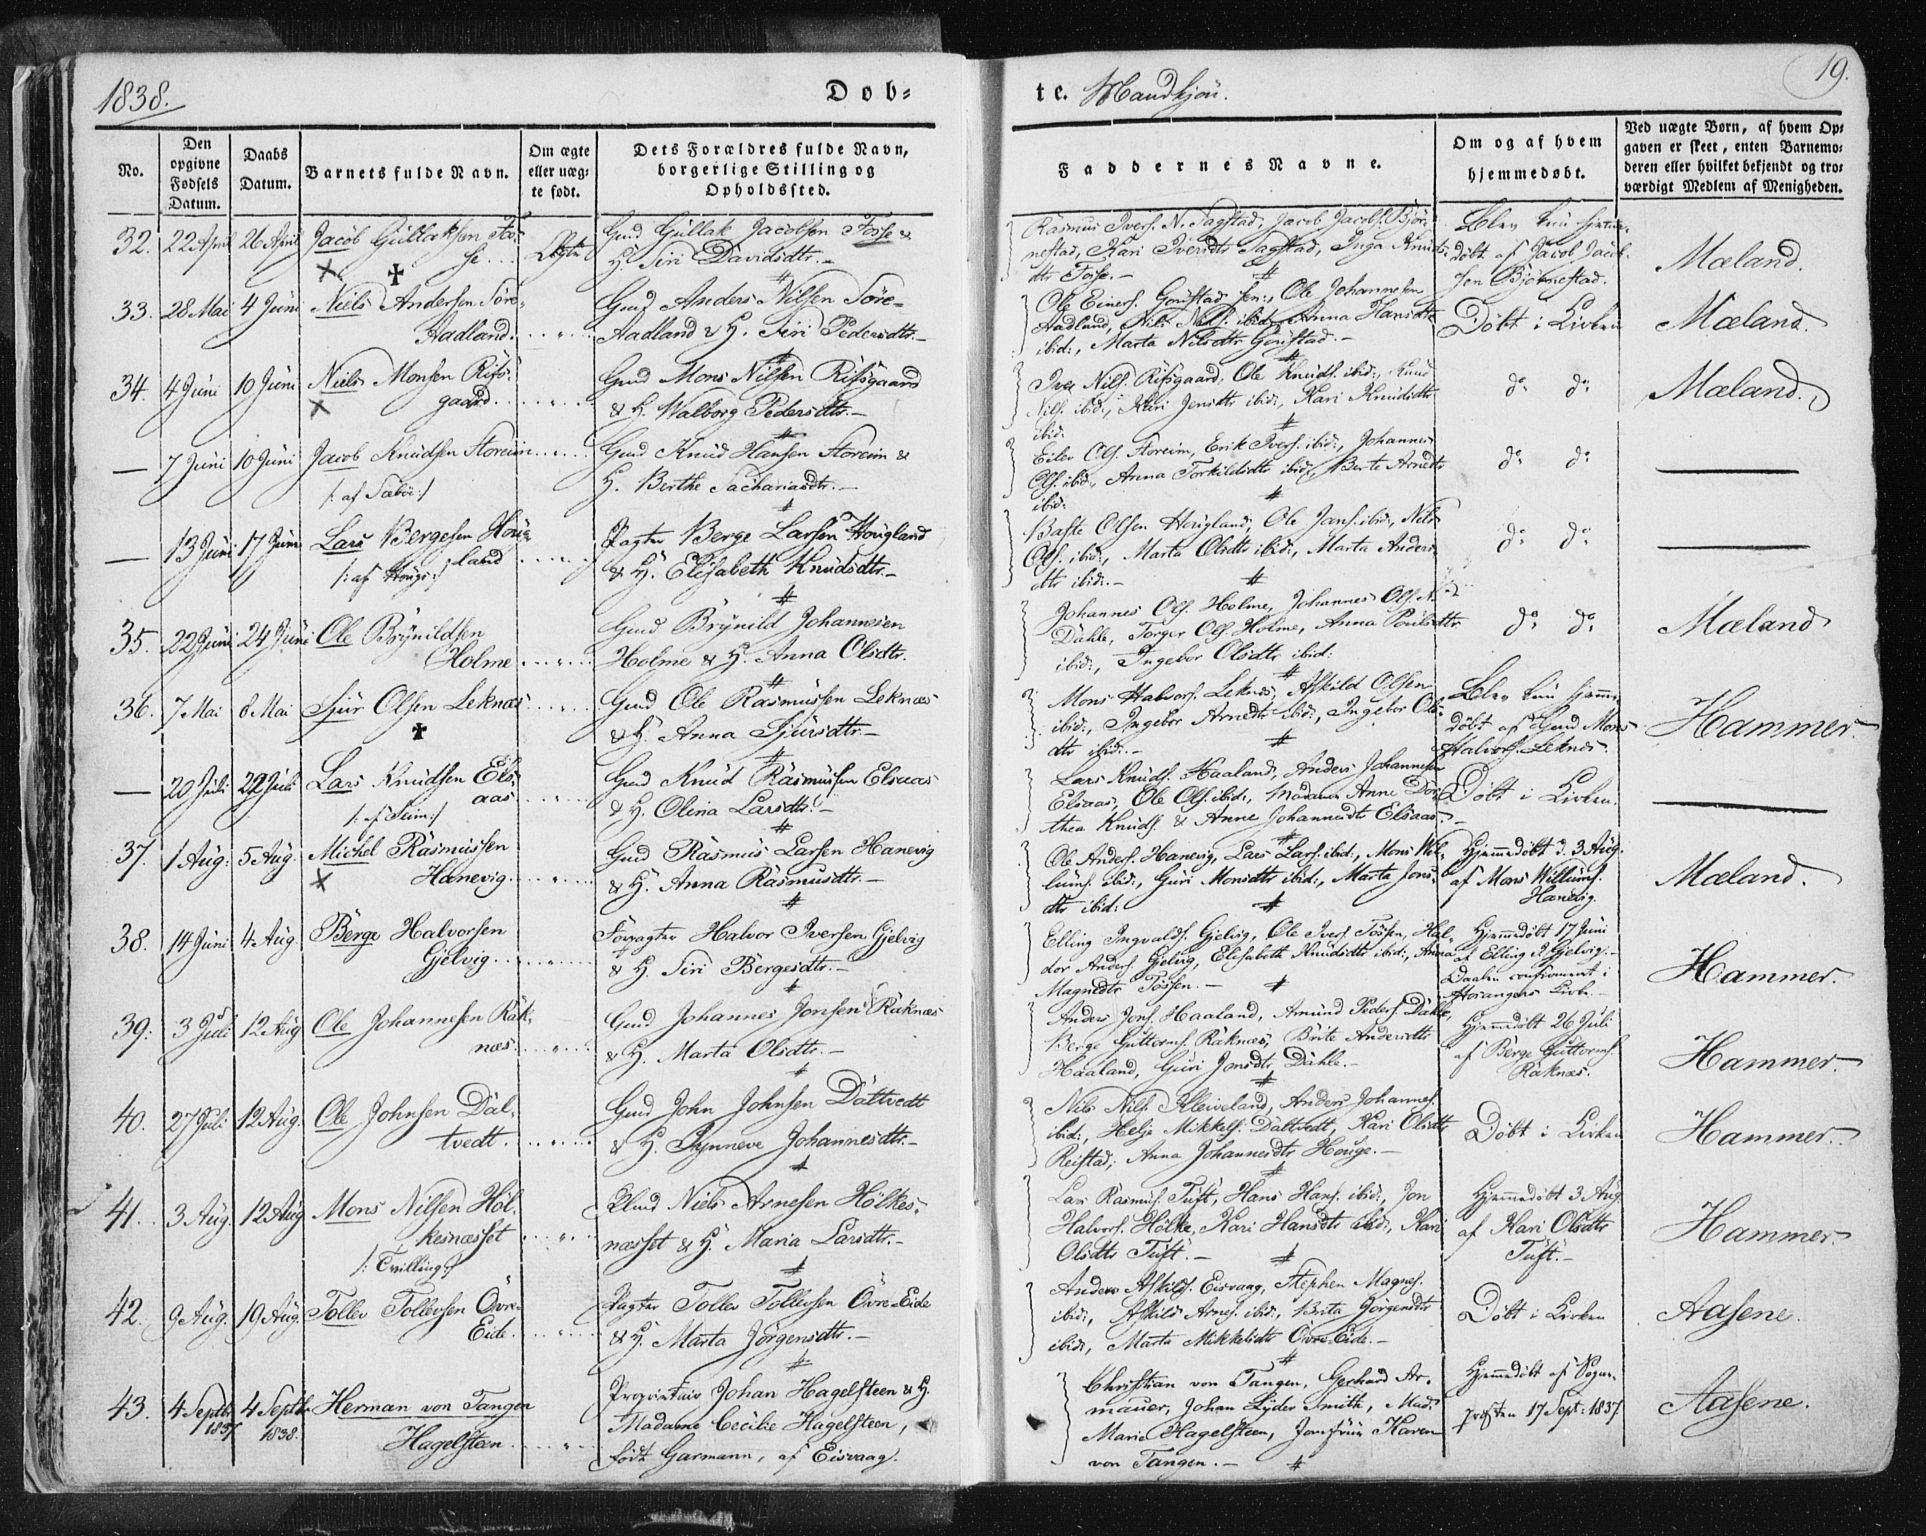 1838.
Døb=
te. Mandkjøn.
19.
No.
Den opgivne Fødsels Datum.
Daabs Datum.
Barnets fulde Navn.
Om ægte eller uæg= te født.
Dets Forældres fulde Navn, borgerlige Stilling og Opholdssted.
Faddernes Navne.
Om og af hvem hjemmedøbt.
Ved uægte Børn, af hvem Op= gaven er skeet, enten Barnemo= deren eller hvilket bekjendt og tro= værdigt Medlem af Menigheden.
32. 22 April 26 April Jacob Gullaksen Fos=
se
Ægte
Gmd Gullak Jacobsen Fosse &
H. Siri Davidsdtr.
Rasmus Ivers. N. Sagstad, Jacob Jacobs. Bjør=
nestad, Kari Iversdtr Sagstad, Inga Knuds=
dtr Fosse.
Blev kun hjemme=
døbt af Jacob Jacob=
sen Bjørnestad.
Mæland.
33. 28 Mai 4 Juni Niels Andersen Søre=
Aadland.
Gmd Anders Nilsen Søre=
Aadland & H. Siri Pedersdtr.
Ole Einers. Gaustad sen:, Ole Johannesen
Aadland, Nils Nils. ibid:, Anna Hansdtr
ibid:, Marta Nilsdtr Gaustad.
Døbt i Kirken
Mæland.
34. 4 Juni 10 Juni Niels Monsen Risß=
gaard.
Gmd Mons Nilsen Risßgaard
& H. Walborg Pedersdtr.
Iver Nils. Risßgaard, Ole Knuds. ibid:, Knud
Nils. ibid:, Kari Jensdtr ibid:, Kari Knudsdtr
ibid:
do do
Mæland.
— 7 Juni 10 Juni Jacob Knudsen Storeim
/: af Sæbø :/
Gmd Knud Hansen Storeim &
H. Berthe Sachariasdtr.
Eiler Ols. Storeim, Erik Ivers. ibid:, Johannes
Ols. ibid:, Anna Torkildsdtr ibid:, Berte Arnedtr
ibid:
do do
— 13 Juni 17 Juni Lars Bergesen Houg=
land
/: af Houg :/
Pagter Berge Larsen Hougland
& H. Elisabeth Knudsdtr.
Baste Olsen Hougland, Ole Jans. ibid:, Nils
Ols. ibid:, Marta Olsdtr ibid:, Marta Anders=
dtr ibid:
do do
35. 22 Juni 24 Juni Ole Brynildsen
Holme
Gmd Brynild Johannesen
Holme & H. Anna Olsdtr.
Johannes Ols. Holme, Johannes Ols. N.
Dahle, Torger Ols. Holme, Anna Poulsdtr
ibid:, Ingebor Olsdtr ibid:
do do
Mæland
36. 7 Mai 8 Mai Sjur Olsen Leknæs
Gmd Ole Rasmussen Leknæs
& H. Anna Sjursdtr.
Mons Halvors. Leknæs, Askild Olsen
ibid:, Ingebor Arnedtr ibid:, Ingebor Ols=
dtr ibid:
Blev kun hjemme=
døbt af Gmd Mons
Halvors. Leknes.
Hammer.
— 20 Juli 22 Juli Lars Knudsen Els=
aas.
/: af Seim :/
Gmd Knud Rasmussen Elsaas
& H. Olena Larsdtr.
Lars Knuds. Haaland, Anders Johannesen
Elsaas, Ole Ols. ibid:, Madame Anne Dor=
thea Knuds. & Anne Johannesdtr Elsaas.
Døbt i Kirken.
37. 1 Aug: 5 Aug. Michel Rasmussen
Hanevig.
Gmd Rasmus Larsen Hanevig
& H. Anna Rasmusdtr.
Ole Anders. Hanevig, Lars Lars. ibid:, Mons Wil=
lums. ibid:, Guri Monsdtr ibid:, Marta Jons=
dtr ibid:
Hjemmedøbt d. 3 Aug.
af Mons Willums.
Hanevig.
Mæland.
38. 14 Juni 4 Aug. Berge Halvorsen
Gjelvig.
Forpagter Halvor Iversen Gjelvig
& H. Siri Bergesdtr.
Elling Ingvalds. Gjelvig, Ole Ivers. Fossen, Hal=
dor Anders. Gjelvig, Elisabeth Knudsdtr ibid:, Anna
Magnedtr Fossen.
Hjemmedøbt 17 Juni
af Elling I. Gjelvig.
Daaben confirmeret i
Hosangers Kirke.
Hammer.
39. 3 Juli 12 Aug Ole Johannesen Rak=
næs.
Gmd Johannes Jonsen Raknæs
& H. Marta Olsdtr.
Anders Jons. Haaland, Amund Peders. Dahle,
Berge Guttorms. Raknæs, Brite Andersdtr
Haaland, Guri Jonsdtr Dahle.
Hjemmedøbt 26 Juli
af Berge Guttorms.
Raknæs.
Hammer.
40. 27 Juli 12 Aug. Ole Johnsen Dal=
tvedt.
Gmd John Johnsen Daltvedt
& H. Synneve Johannesdtr.
Nils Nils. Kleiveland, Anders Johannes.
ibid:, Helje Mikkels. Daltvedt, Kari Olsdtr
Reistad, Anna Johannesdtr Houge.
Døbt i Kirken
Hammer.
41. 3 Aug. 12 Aug Mons Nilsen Høl=
kesnæsset
/: Tvilling :/
Huusmd Niels Arnesen Hølkes=
næsset & H. Maria Larsdtr.
Lars Rasmus. Tuft, Hans Hans. ibid:, Jon
Halvors. Hølke, Kari Hansdtr ibid:, Kari
Olsdtr Tuft.
Hjemmedøbt 3 Aug
af Kari Olsdtr
Tuft.
Hammer.
42. 9 Aug. 19 Aug. Tollev Tollevsen Övre=
Eide.
Pagter Tollev Tollevsen Övre-Eide
& H. Marta Jörgensdtr.
Anders Askilds. Eisvaag, Stephen Magnes.
ibid:, Askild Arnes. ibid:, Berta Jörgensdtr
ibid:, Marta Mikkelsdtr Övre-Eide.
Døbt i Kirken
Aasene.
43. 4 Septbr 1837 4 Septbr 1838. Herman von Tangen
Hagelsteen.
Proprietair Johan Hagelsteen & H.
Madame Cecilie Hagelsteen,
født Garmann, af Eisvaag.
Christian von Tangen, Gerhard Ar=
mauer, Johan Lyder Smith, Mad.
Marie Hagelsteen, Jomfrue Karen
von Tangen.
Hjemmedøbt af Sogne=
præsten 17 Sept: 1837.
Aasene.